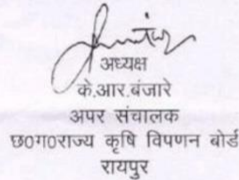 अध्यक्ष
के.आर.बंजारे
अपर संचालक
छ0ग0राज्य कृषि विपणन बोर्ड
रायपुर